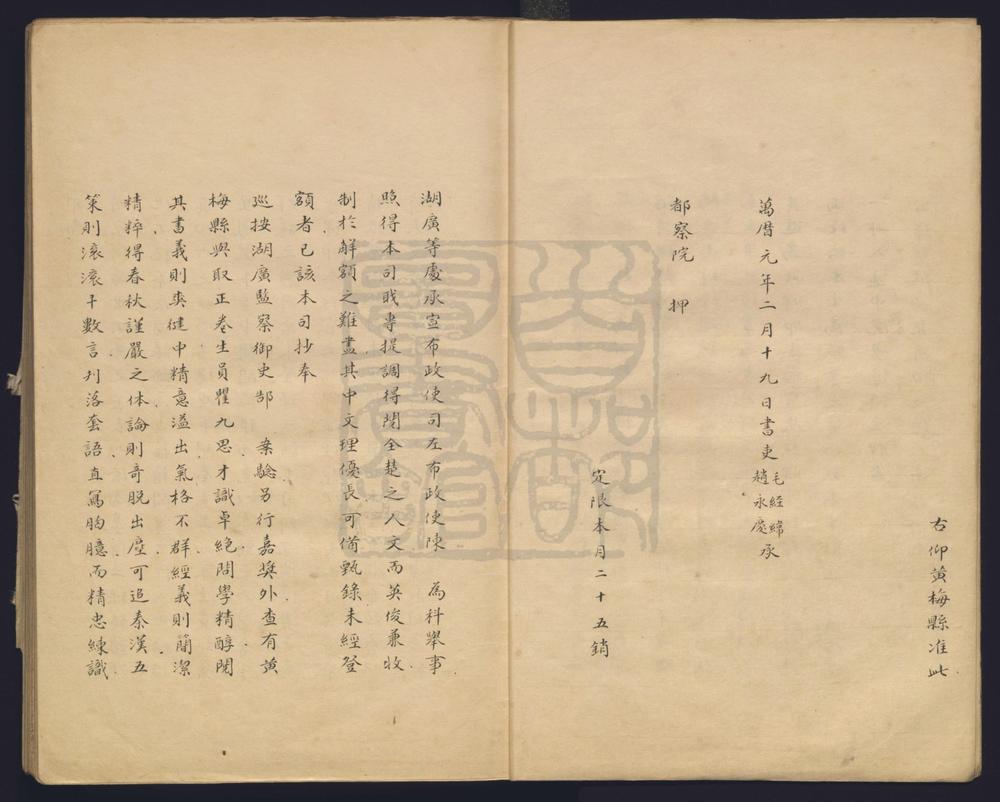 右仰黄梅縣准此
萬曆元年二月十九日書吏毛経緯趙永慶承
都察院　押
定限本月二十五銷
湖廣等處承宣布政使司左布政使陳　為科舉事
照得本司職專提調得閱全楚之人文而英俊兼收
制於解額之難盡其中文理優長可備甄錄未經登
額者已該本司抄奉
巡按湖廣監察御史郜　案驗另行嘉奬外查有黄
梅縣與取正卷生員瞿九思才識卓絶問學精醇閱
其書義則爽健中精意溢出氣格不群經義則簡潔
精粹得春秋謹嚴之体論則竒脱出塵可追秦漢五
策則滚滚千數言刋落套語直寫胸臆而精忠練識